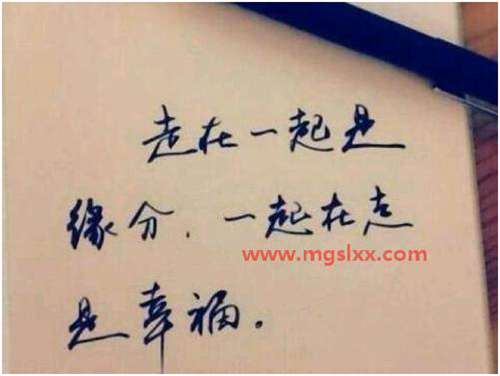 走在一起是
缘分、一起在走
www.mgslxx.com
是幸福。